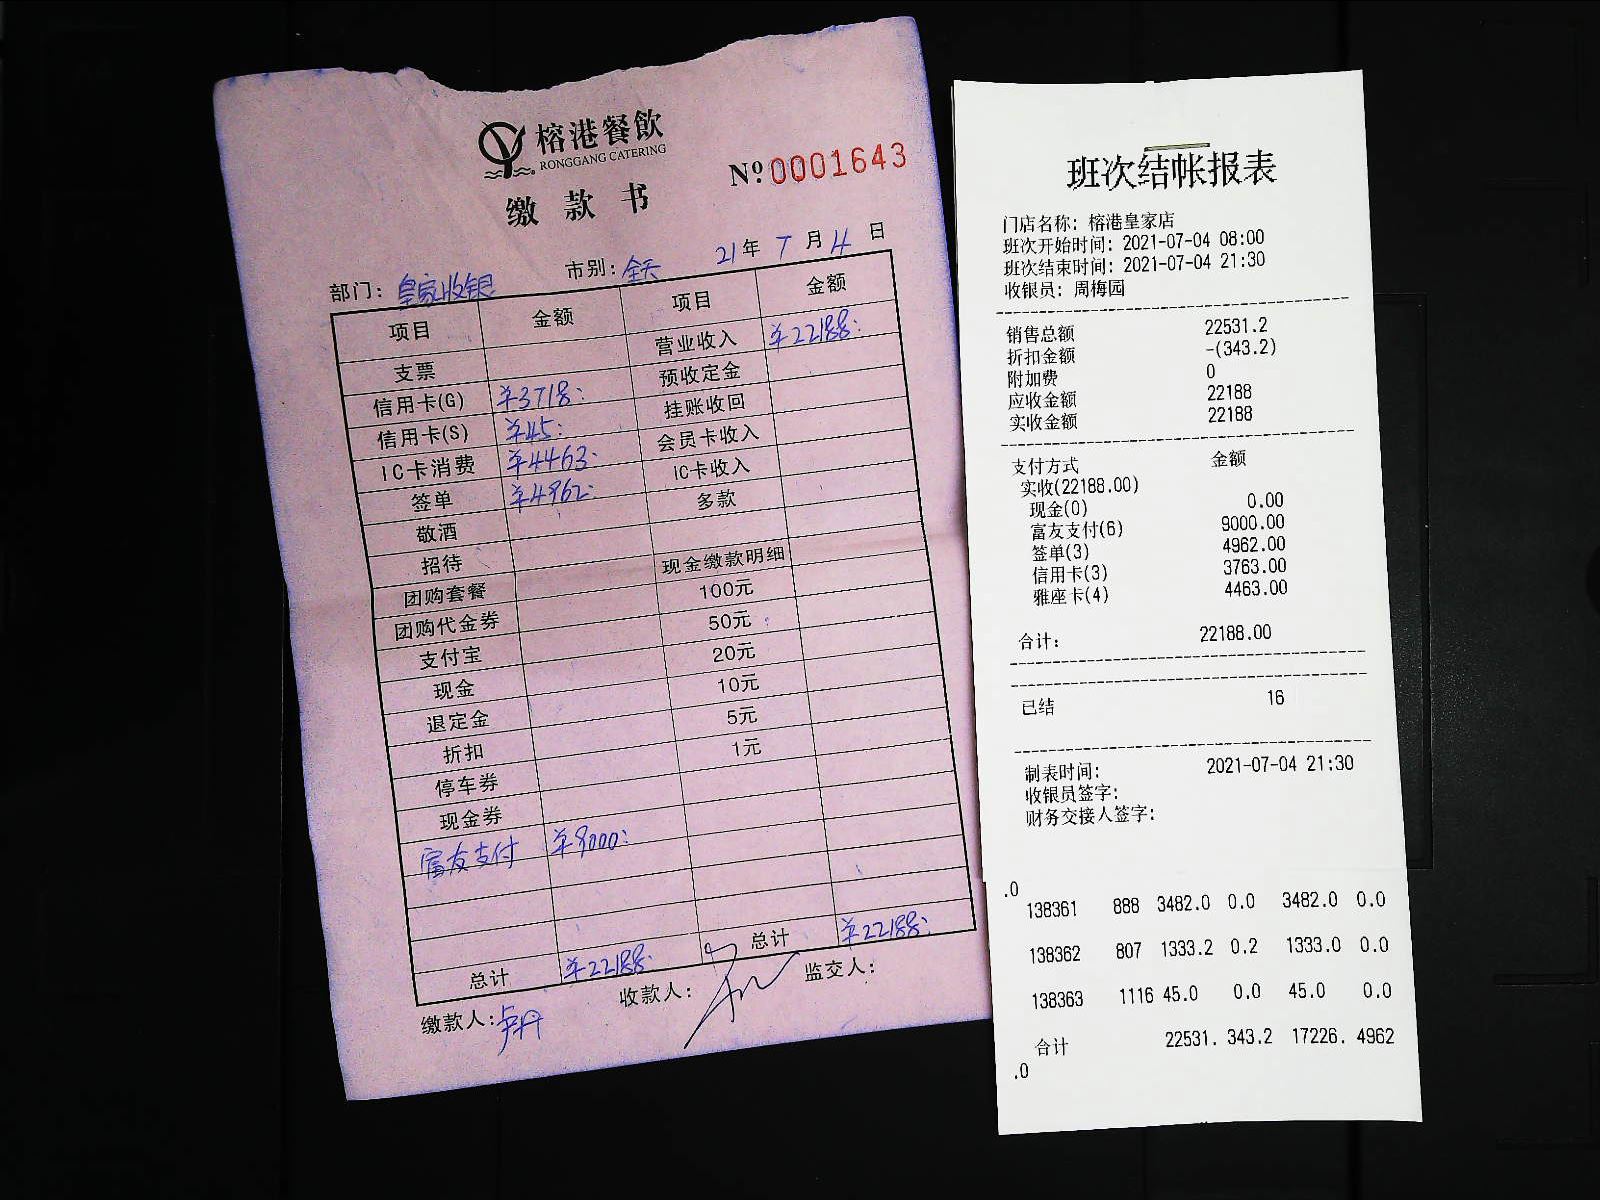 榕港餐飲
RONGGANG CATERING
缴款书
№0001643
部门：皇家收银 市别：全天 21年7月4日
项目 金额 项目 金额
支票 营业收入 ¥22188:
信用卡(G) ¥3718: 预收定金
信用卡(S) ¥45: 挂账收回
IC卡消费 ¥4463: 会员卡收入
签单 ¥4962: IC卡收入
敬酒 多款
招待
团购套餐 现金缴款明细
团购代金券 100元
支付宝 50元
现金 20元
退定金 10元
折扣 5元
停车券 1元
现金券
富友支付 ¥9000:
总计 ¥22188: 总计 ¥22188:
缴款人: 卢丹 收款人: 监交人:
班次结帐报表
门店名称: 榕港皇家店
班次开始时间: 2021-07-04 08:00
班次结束时间: 2021-07-04 21:30
收银员: 周梅园
销售总额 22531.2
折扣金额 -(343.2)
附加费 0
应收金额 22188
实收金额 22188
支付方式 金额
实收(22188.00)
现金(0) 0.00
富友支付(6) 9000.00
签单(3) 4962.00
信用卡(3) 3763.00
雅座卡(4) 4463.00
合计: 22188.00
已结 16
制表时间: 2021-07-04 21:30
收银员签字:
财务交接人签字:
.0
138361 888 3482.0 0.0 3482.0 0.0
138362 807 1333.2 0.2 1333.0 0.0
138363 1116 45.0 0.0 45.0 0.0
合计 22531. 343.2 17226. 4962
.0